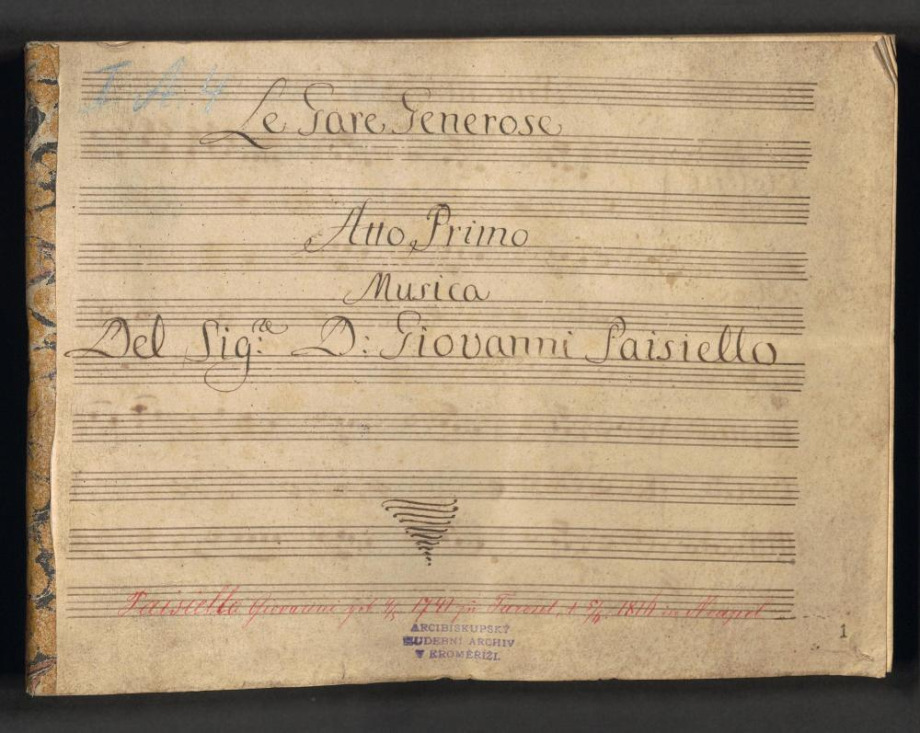 I A. 4
Le Gare Generose
Atto Primo
Musica
Del Sig.re D: Giovanni Paisiello
Paisiello Giovanni geb. 1741 zu Tarent, † 5/6 1816 in Neapel
ARCIBISKUPSKÝ
HUDEBNÍ ARCHIV
V KROMĚŘÍŽI.
1